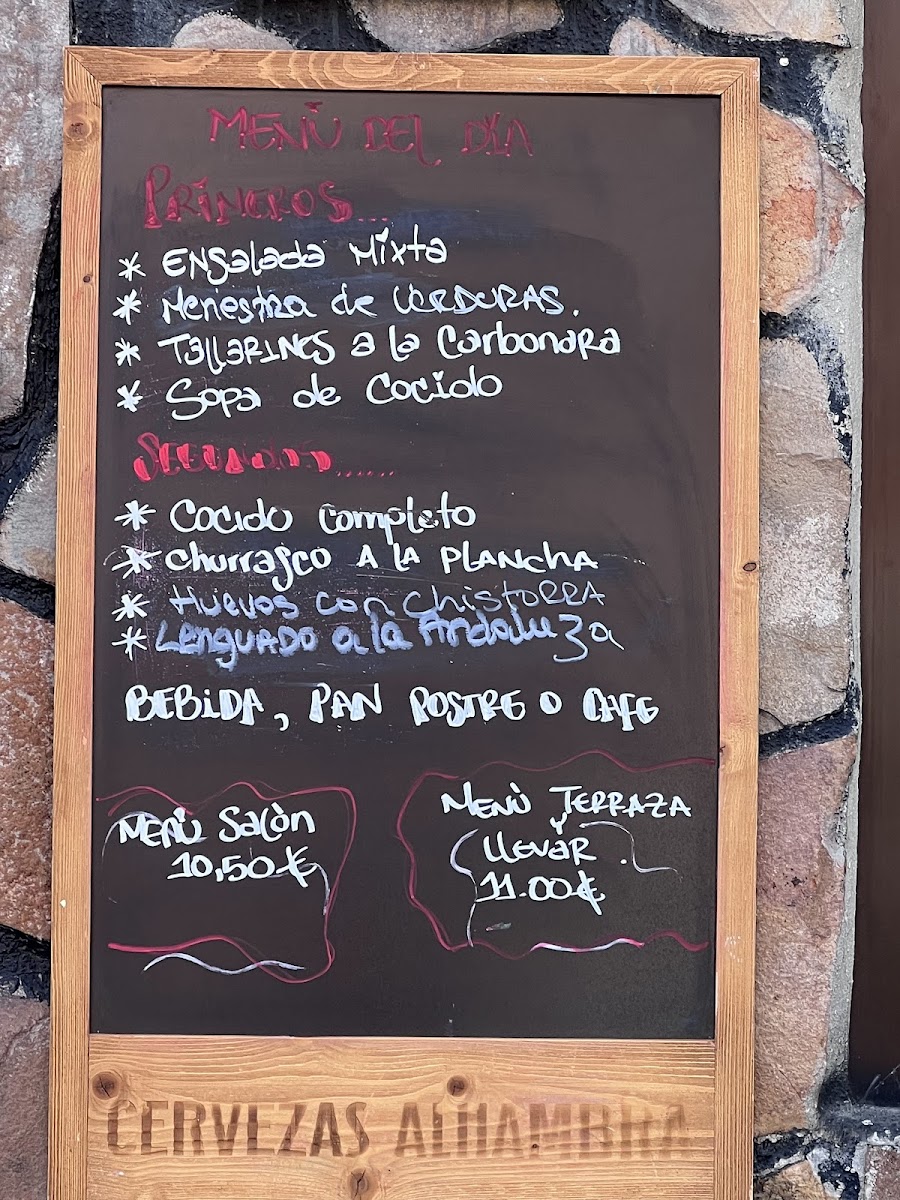 MENÙ DEL DÍA
PRIMEROS...
* ENSalada Mixta
* Menestra de VERDURAS.
* TallaRINES a la Carbonara
* Sopa de Cocido
SEGUNDOS......
* Cocido Completo
* Churrasco A la PlANCHA
* Huevos con chistoRRA
* LENGUADO a la Andaluza
BEBIDA, PAN POSTRE O CAFE
MENÙ Salòn
10,50€
MENÙ TERRAZA
y
LLEVAR.
11.00€
CERVEZAS ALHAMBRA